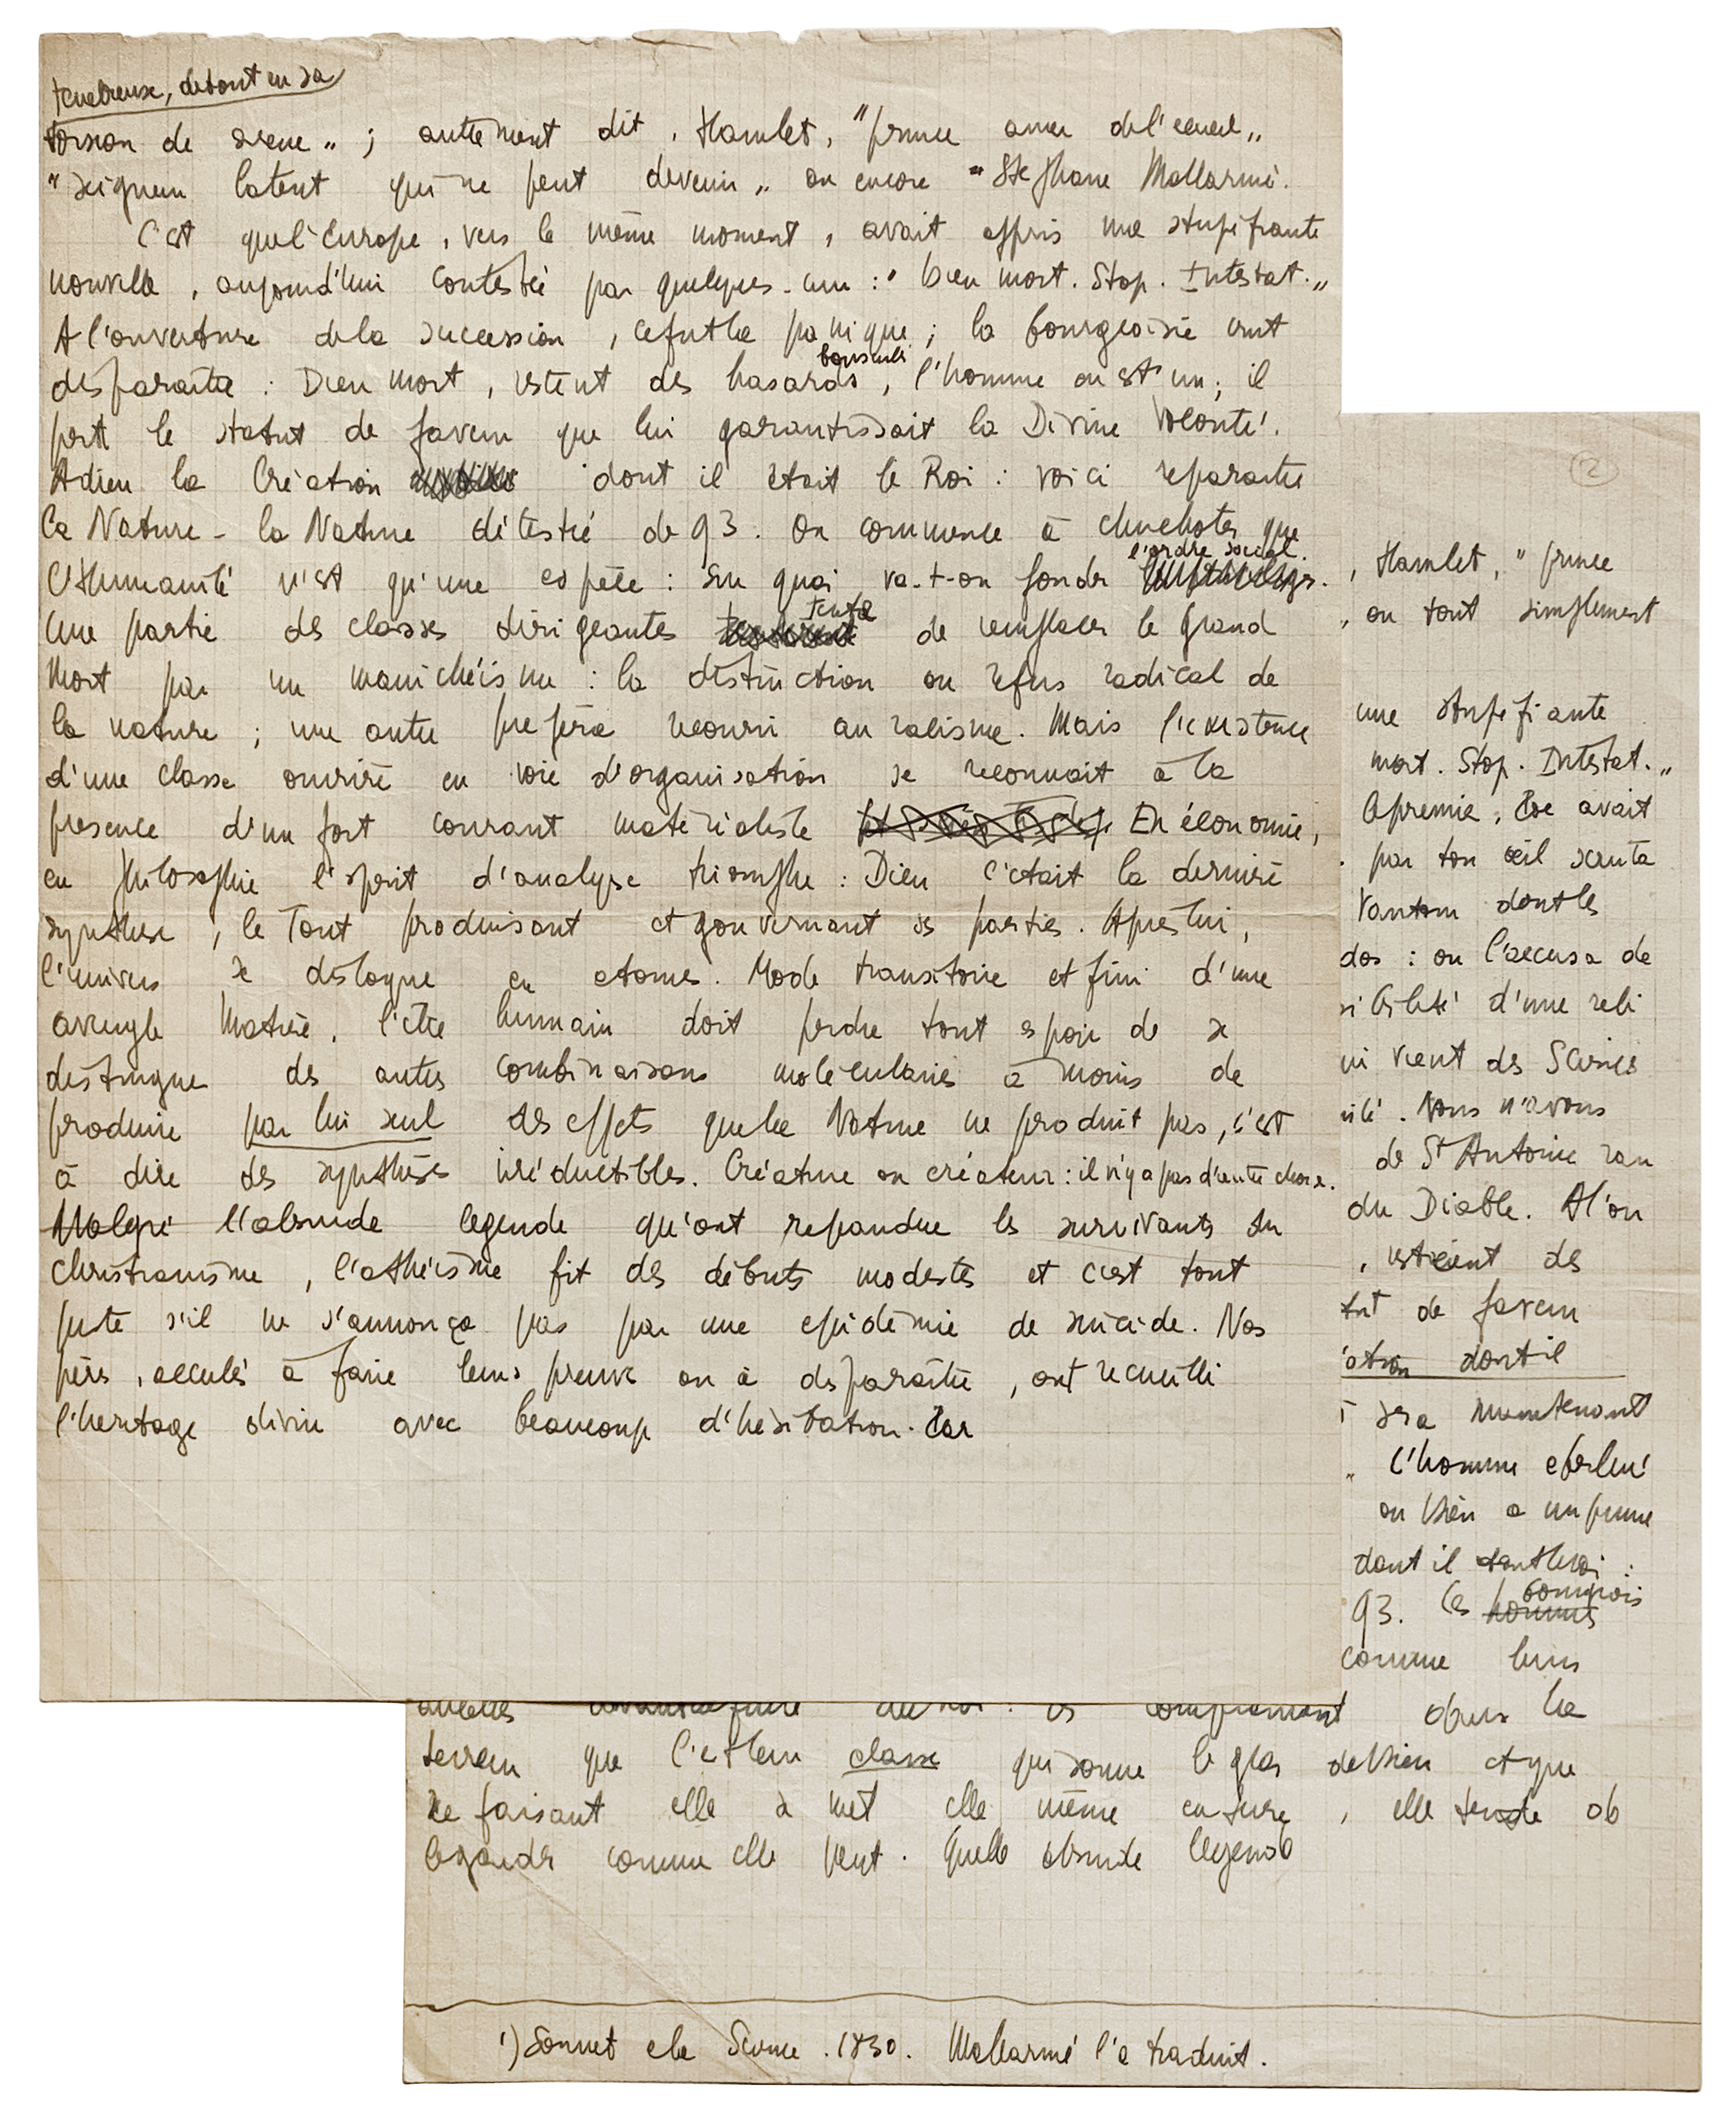 tenebreuse, debout en sa
torsion de sirène „ ; autrement dit, Hamlet, "prince amer de l'écueil„
"seigneur latent qui ne peut devenir„ ou encore "Stephane Mallarmé.
C'est que l'Europe, vers le même moment, avait appris une stupéfiante
nouvelle, aujourd'hui contestée par quelques-uns : "Dieu mort. Stop. Intestat.„
A l'ouverture de la succession, ce fut la panique ; la bourgeoisie crut
disparaître : Dieu mort, restent des hasards, l'homme en est un ; il
perd le statut de faveur que lui garantissait la Divine Volonté.
Adieu la Création dont il était le Roi : voici reparaître
la Nature - la Nature détestée de 93. On commence à chuchoter que
l'Humanité n'est qu'une espèce : sur quoi va-t-on fonder l'ordre social.
Une partie des classes dirigeantes tenta de remplacer le grand
Mort par un manichéisme : la distinction ou refus radical de
la nature ; une autre préféra recourir au réalisme. Mais l'existence
d'une classe ouvrière en voie d'organisation se reconnait à la
presence d'un fort courant matérialiste En économie,
en philosophie l'esprit d'analyse triomphe : Dieu c'était la dernière
synthèse, le Tout produisant et gouvernant ses parties. Après lui,
l'univers se disloque en atomes. Mode transitoire et fini d'une
aveugle Matière, l'être humain doit perdre tout espoir de se
distinguer des autres combinaisons moléculaires à moins de
produire par lui seul des effets que la Nature ne produit pas, c'est
à dire des synthèses irréductibles. Créature ou créateur : il n'y a pas d'autre chose.
Malgré l'absurde legende qu'ont répandue les survivants du
christianisme, l'athéisme fit des débuts modestes et c'est tout
juste s'il ne s'annonça pas par une epidémie de suicide. Nos
pères, acculés à faire leurs preuves ou à disparaître, ont recueilli
l'heritage divin avec beaucoup d'hésitation. Car
2
, Hamlet, " prince
, ou tout simplement
une stupéfiante
mort. Stop. Intestat.„
avait
. par ton œil scruta
dont les
dos : on l'accusa de
d'une reli
vient des Scènes
. Nous n'avons
de St Antoine
du Diable. A l'ou
, restaient des
de faveur
dont il
sera maintenant
„ l'homme
ou bien
dont il
93. les hommes bourgeois
comme leurs
comprennent dans la
terreur que c'est leur classe qui sonne le glas de Dieu et que
ce faisant elle se met elle même en , elle
comme elle peut. Quelle absurde légende
1) Sonnet de . 1830. Mallarmé l'a traduit.